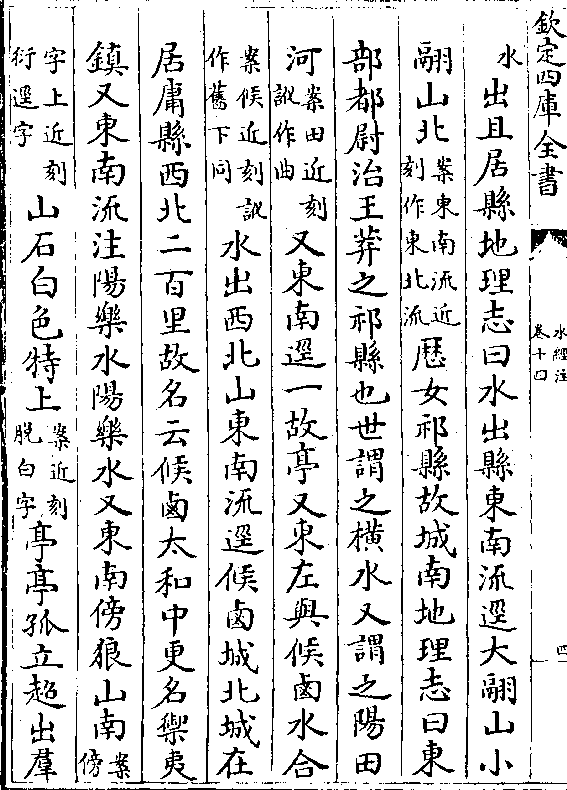 欽定四庫全書
水經注
卷十四
四
水出且居縣地理志曰水出縣東南流逕大翮山小
翮山北案東南流近刻作東北流歷女祁縣故城南地理志曰東
部都尉治王莽之祁縣也世謂之橫水又謂之陽田
河案田近刻訛作曲又東南逕一故亭又東左與候鹵水合
案候近刻訛作舊下同水出西北山東南流逕候鹵城北城在
居庸縣西北二百里故名云候鹵太和中更名禦夷
鎮又東南流注陽樂水陽樂水又東南傍狼山南案傍
字上近刻衍逕字山石白色特上案近刻脫白字亭亭孤立超出羣